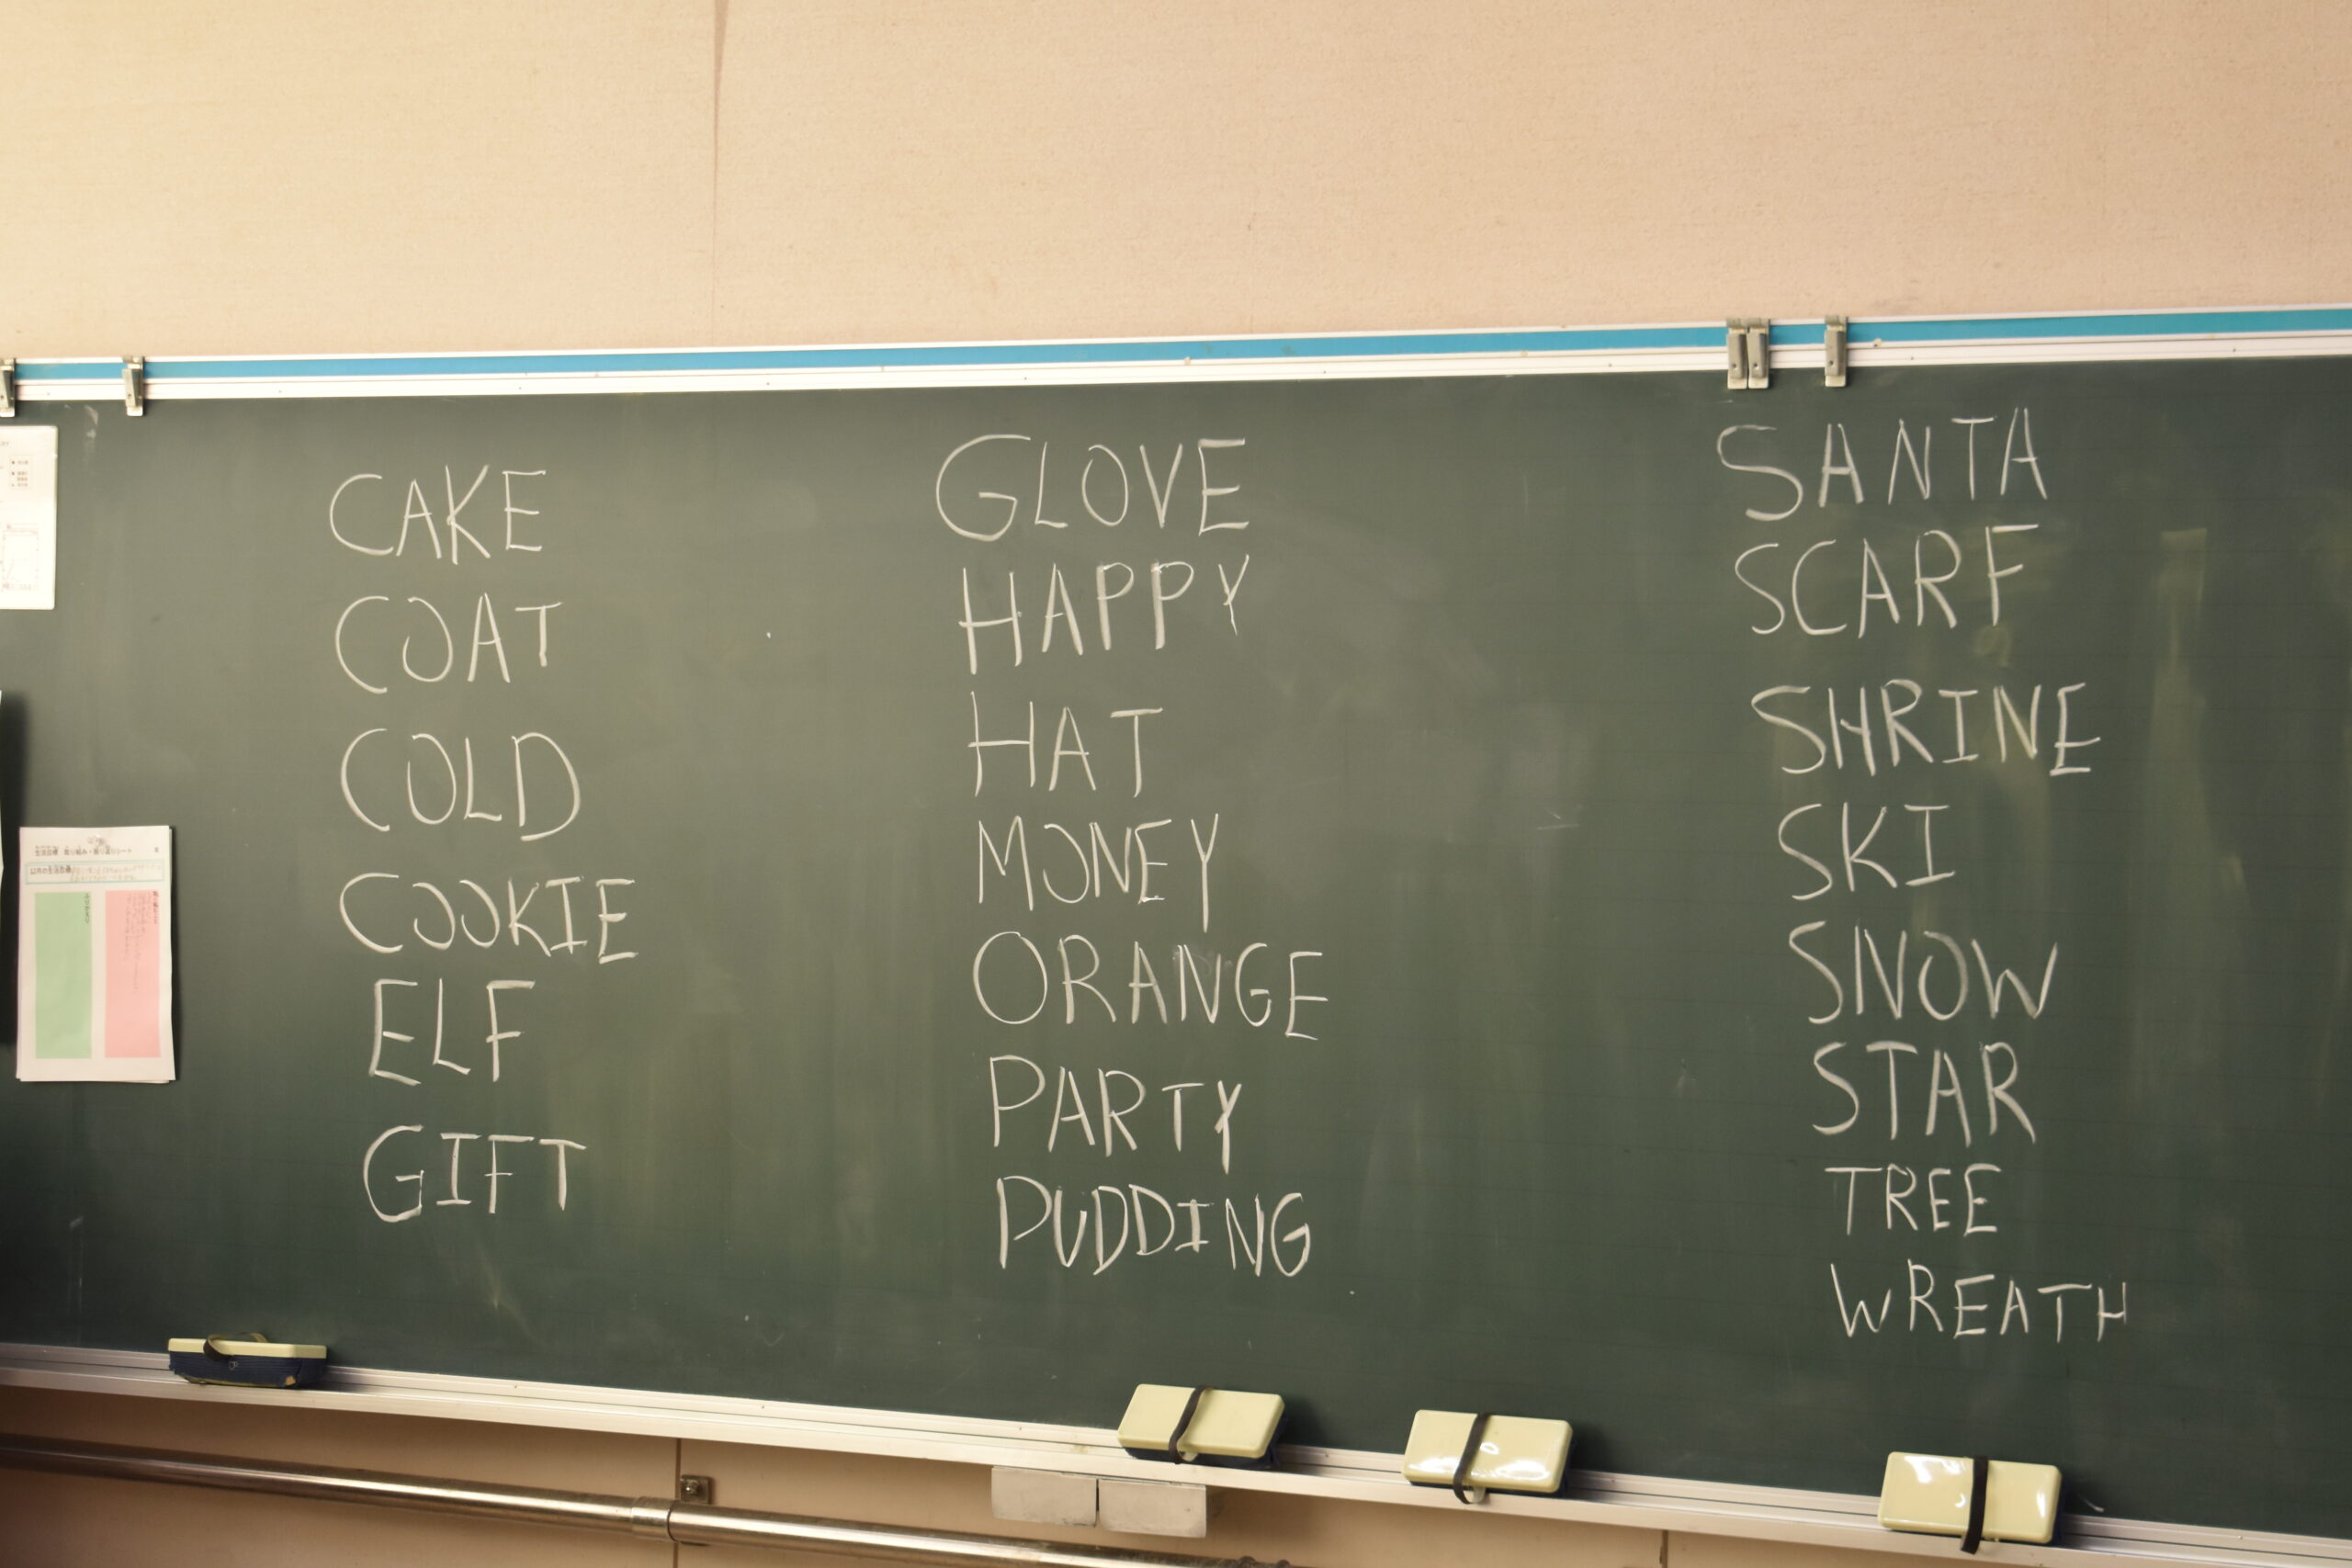 CAKE
COAT
COLD
COOKIE
ELF
GIFT
GLOVE
HAPPY
HAT
MONEY
ORANGE
PARTY
PUDDING
SANTA
SCARF
SHRINE
SKI
SNOW
STAR
TREE
WREATH